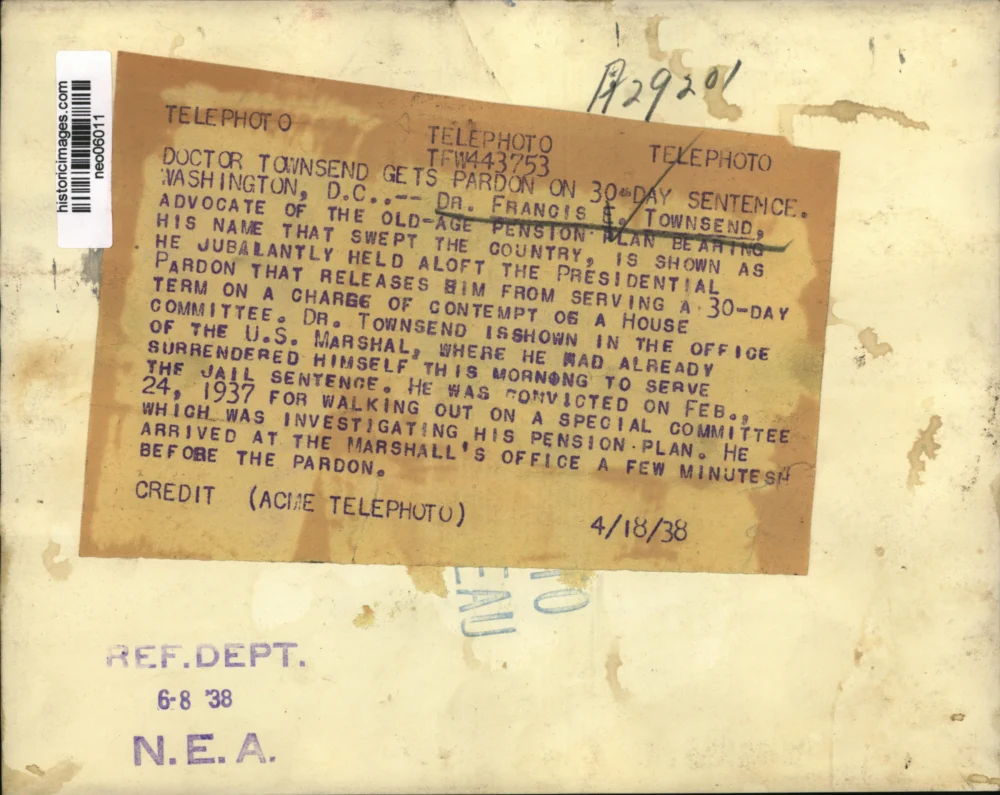 historicimages.com
neo06011
A29201
TELEPHOTO TELEPHOTO TELEPHOTO
TFW443753
DOCTOR TOWNSEND GETS PARDON ON 30-DAY SENTEMCE.
WASHINGTON, D.C..-- DR. FRANCIS E. TOWNSEND,
ADVOCATE OF THE OLD-AGE PENSION PLAN BEARING
HIS NAME THAT SWEPT THE COUNTRY, IS SHOWN AS
HE JUBALANTLY HELD ALOFT THE PRESIDENTIAL
PARDON THAT RELEASES HIM FROM SERVING A 30-DAY
TERM ON A CHARGE OF CONTEMPT OG A HOUSE
COMMITTEE. DR. TOWNSEND ISSHOWN IN THE OFFICE
OF THE U.S. MARSHAL, WHERE HE HAD ALREADY
SURRENDERED HIMSELF THIS MORNONG TO SERVE
THE JAIL SENTENCE. HE WAS CONVICTED ON FEB.,
24, 1937 FOR WALKING OUT ON A SPECIAL COMMITTEE
WHICH WAS INVESTIGATING HIS PENSION PLAN. HE
ARRIVED AT THE MARSHALL'S OFFICE A FEW MINUTES
BEFORE THE PARDON.
CREDIT (ACME TELEPHOTO) 4/18/38
REF.DEPT.
6-8 '38
N.E.A.